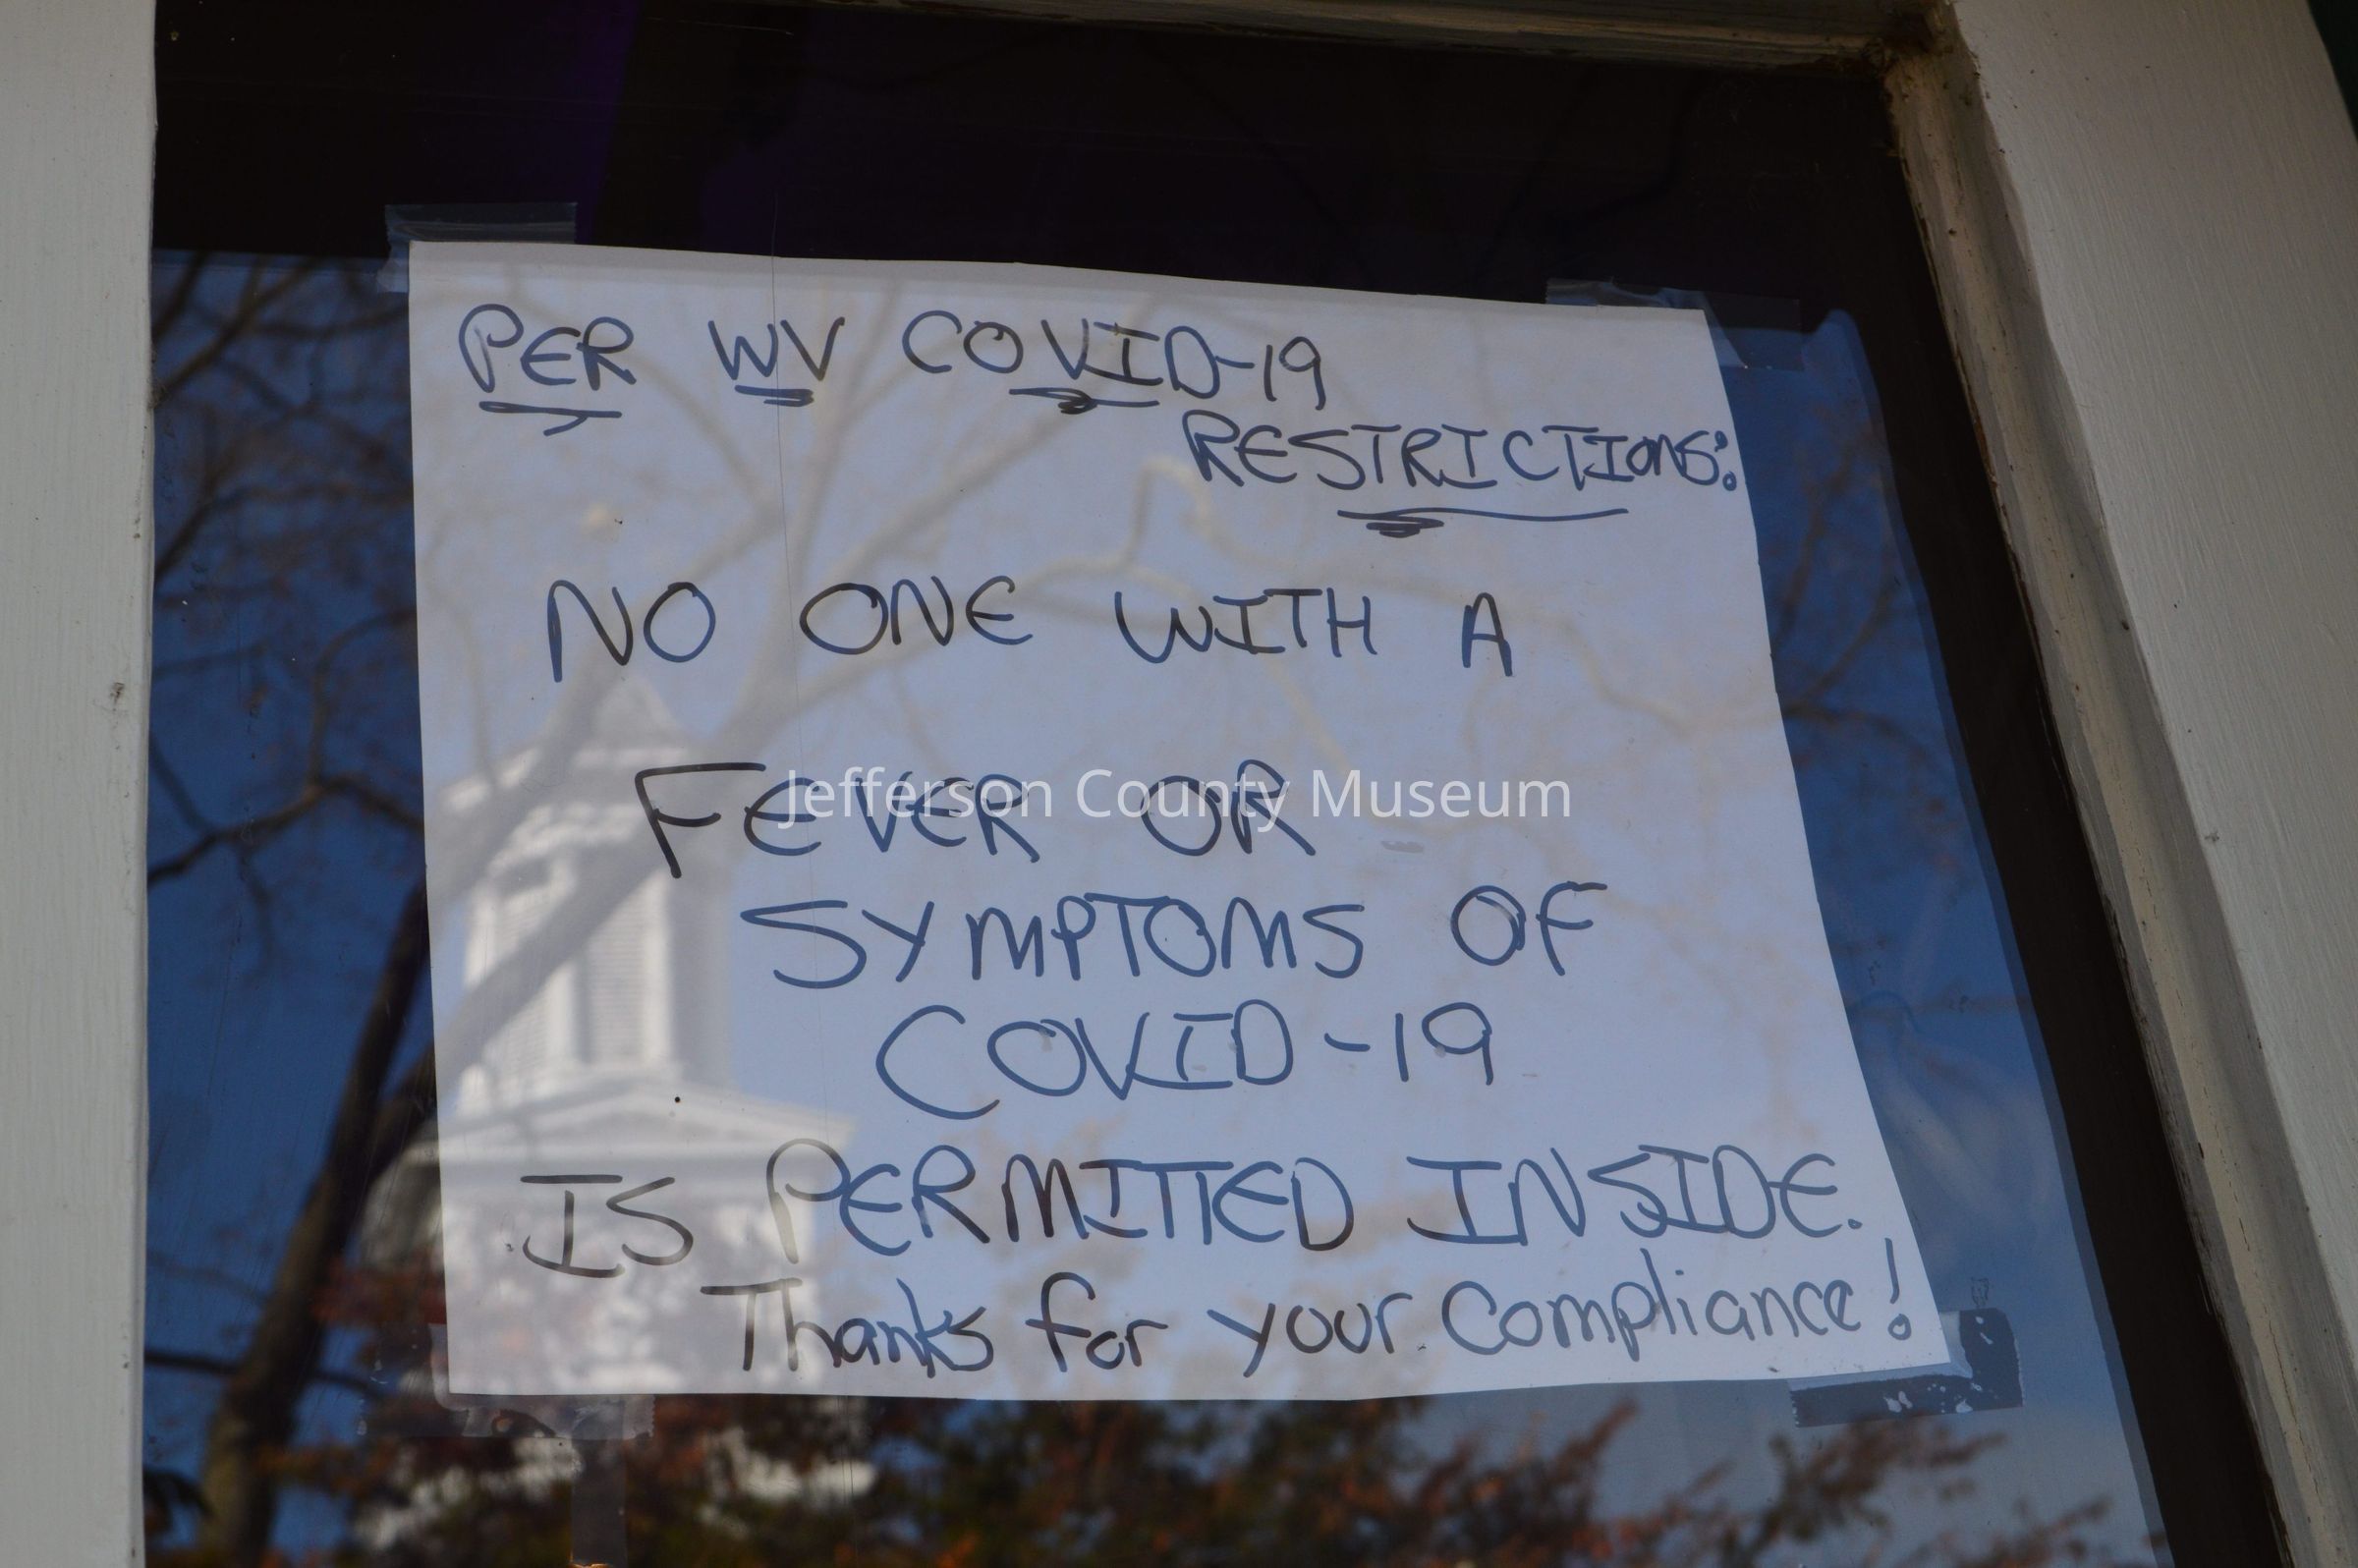 PER WV COVID-19
RESTRICTIONS:
NO ONE WITH A
FEVER OR
Jefferson County Museum
SYMPTOMS OF
COVID-19
IS PERMITTED INSIDE.
Thanks for your Compliance!